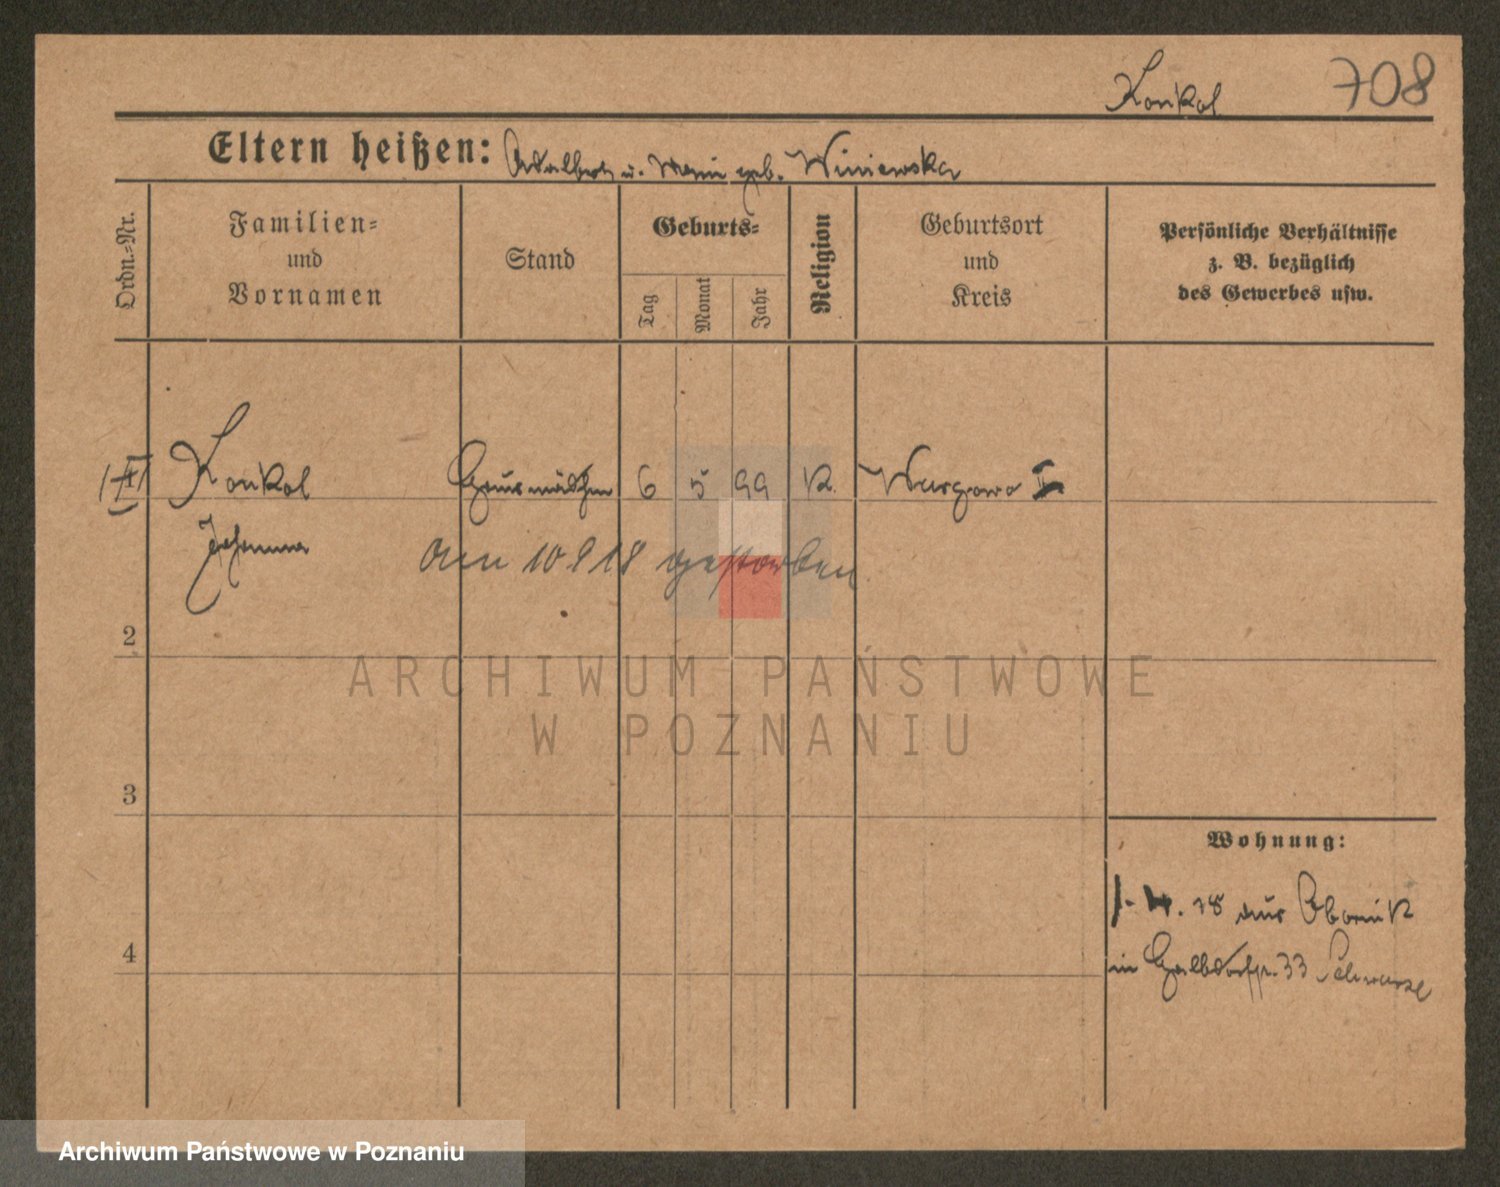 Konkol 708
Eltern heißen: Adalbert u. Maria geb. Winiewska
Ordn.-Nr.
Familien-
und
Vornamen
Stand
Geburts-
Tag
Monat
Jahr
Religion
Geburtsort
und
Kreis
Persönliche Verhältnisse
z. B. bezüglich
des Gewerbes usw.
Konkol Hausmädchen 6 5 99 K. Wargowo
Johanna
am 10 9 18 gestorben
2
3
4
Wohnung:
18 aus Obornik
in Halbdorfstr. 33 Schwarze
ARCHIWUM PAŃSTWOWE
W POZNANIU
Archiwum Państwowe w Poznaniu